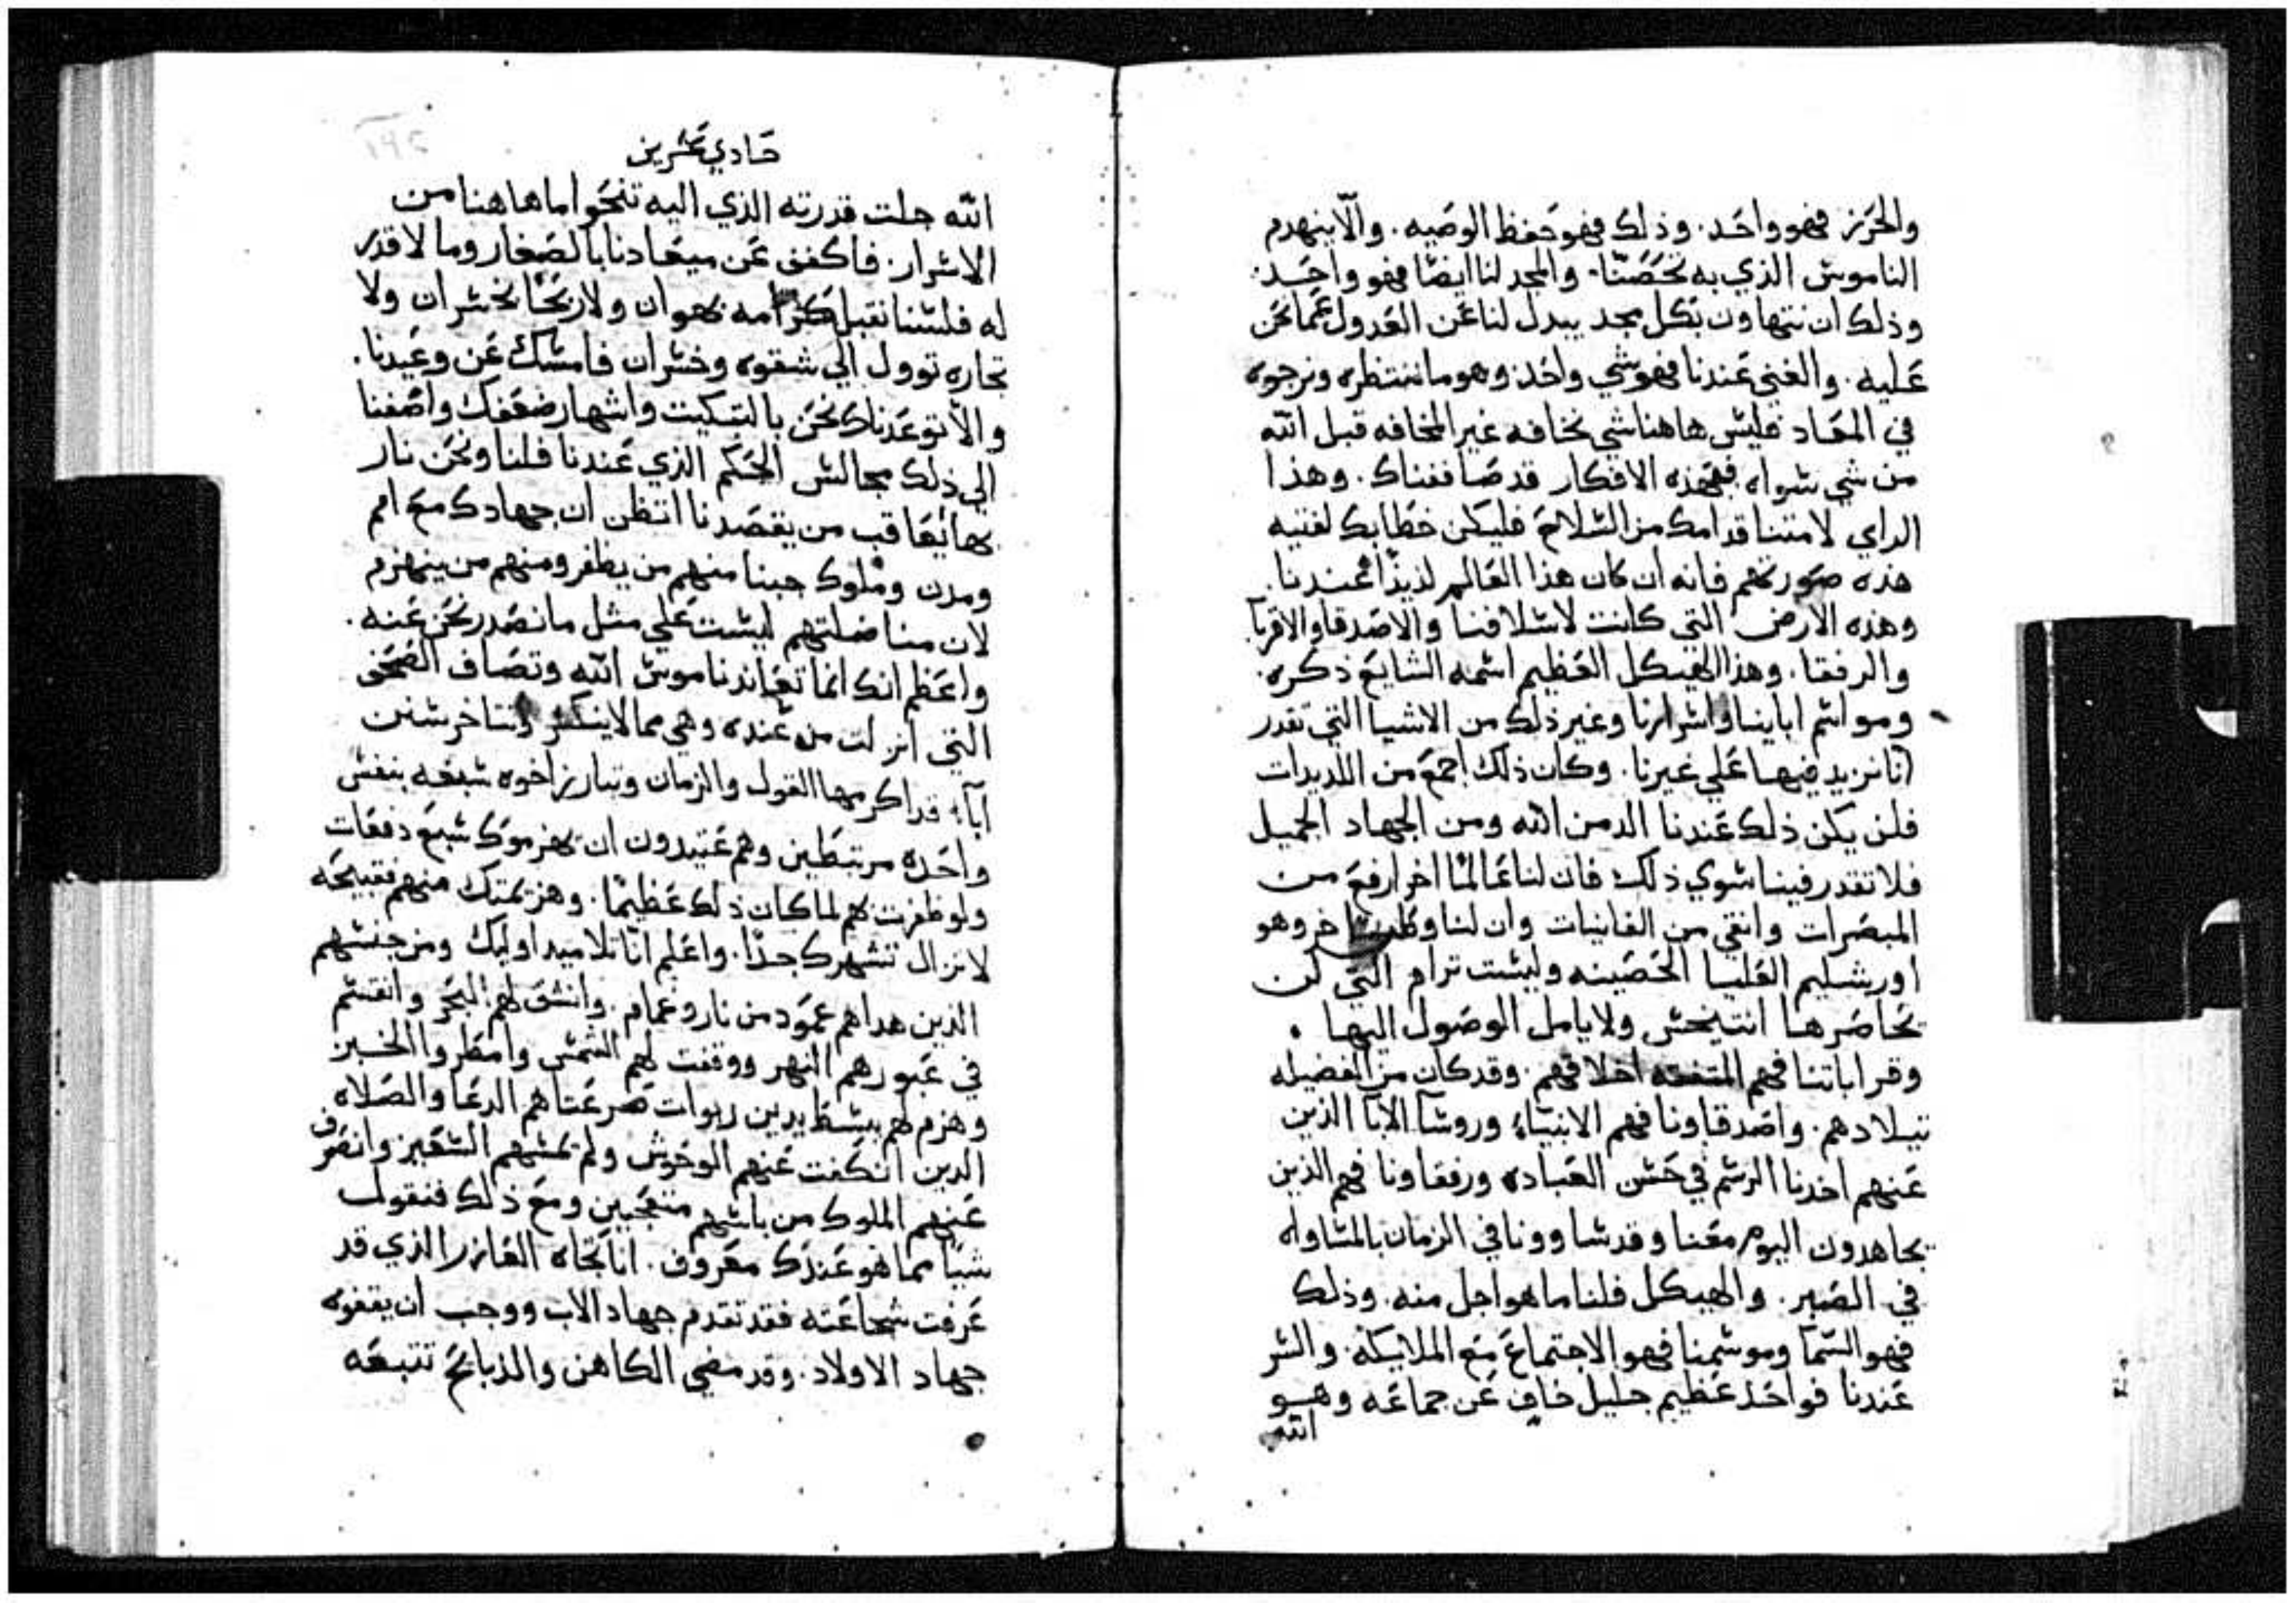 والحرز فهو واحد. وذلك فهو حفظ الوصيه. والّا ينهدم
الناموس الذي به تحصّنّا. والمجد لنا ايضًا فهو واحد.
وذلك ان نتهاون بكل مجد يبدل لنا عن العدول عما نحن
عليه. والغني عندنا فهو شي واحد وهو ما ننتظره ونرجوه
في المعاد فليس هاهنا شي نخافه غير المخافه قبل الله
من شي سواه فبهذه الافكار قد صاففناك. وهذا
الراي لامتنا قدامك من السلاح فليكن خطابك لفتيه
هذه صورتهم فانه ان كان هذا العالم لذيذًا عندنا.
وهذه الارض التي كانت لاسلافنا والاصدقا والاقربآ
والرفقا. وهذا الهيكل العظيم اسمه الشايع ذكره.
ومواسم اباينا واسرارنا وغير ذلك من الاشيا التي تقدر
انا نزيد فيها علي غيرنا. وكان ذلك اجمع من اللديدات
فلن يكن ذلك عندنا الد من الله ومن الجهاد الجميل
فلا تقدر فينا سوي ذلك فان لنا عالمًا اخر ارفع من
المبصرات وانقي من الفانيات وان لنا وطنًا اخر وهو
اورشليم العليا الحصينه وليست ترام التي لن
يحاصرها انتيخس ولا يامل الوصول اليها.
وقراباتنا فهم المتفقه اخلاقهم. وقد كان من الفضيله
تيلادهم. واصدقاونا فهم الانبيآء وروسآ الابآ الذين
عنهم اخدنا الرسم في حسن العباده ورفقاونا فهم الذين
يجاهدون اليوم معنا وقد ساوونا في الزمان بالمساواه
في الصبر. والهيكل فلنا ما هو اجل منه. وذلك
فهو السمآ وموسمنا فهو الاجتماع مع الملايكه. والسر
عندنا فواحد عظيم جليل خافٍ عن جماعه وهو
الله
حادي عشرين
الله جلت قدرته الذي اليه تنحوا ما هاهنا من
الاسرار. فاكفف عن ميعادنا بالصغار وما لا قدر
له فلسنا نقبل كرامه بهوان ولا ربحًا بخسران ولا
تجاره توول الي شقوه وخسران فامسك عن وعيدنا.
والّا توعدناك نحن بالتبكيت واشهار ضعفك واضفنا
الي ذلك مجالس الحكم الذي عندنا فلنا ونحن نار
بها نعاقب من يقصدنا اتظن ان جهادك مع امم
ومدن وملوك جبنا منهم من يظفر ومنهم من ينهزم
لان مناضلتهم ليست علي مثل ما نصدر نحن عنه.
واعظم انك انما تعاند ناموس الله وتصاف الصحف
التي انزلت من عنده وهي مما لا ينكسر
آبآء قد اكرمها القول والزمان وتبارز اخوه سبعه بنفس
واحده مرتبطين وهم عتيدون ان يهزموك سبع دفعات
ولو ظفرت بهم لما كان ذلك عظيمًا. وهزيمتك منهم فقبيحه
لا تزال تشهرك جدًا. واعلم انّا تلاميد اوليك ومن جنسهم
الذين هداهم عمود من نار وغمام. وانشق لهم البحر وانقسم
في عبورهم النهر ووقفت لهم الشمس وامطروا الخبز
وهزم لهم ببسط يدين ربوات صرعتاهم الدعا والصلاه
الدين انكفت عنهم الوحوش ولم تمسهم السعير وانصرف
عنهم الملوك من باسهم متعجبين ومع ذلك فنقول
شيا مما هو عندك معروف. انا تجاه العازر الذي قد
عرفت شجاعته فقد تقدم جهاد الاب ووجب ان يقفوه
جهاد الاولاد. وقد مضي الكاهن والذبايح تتبعه